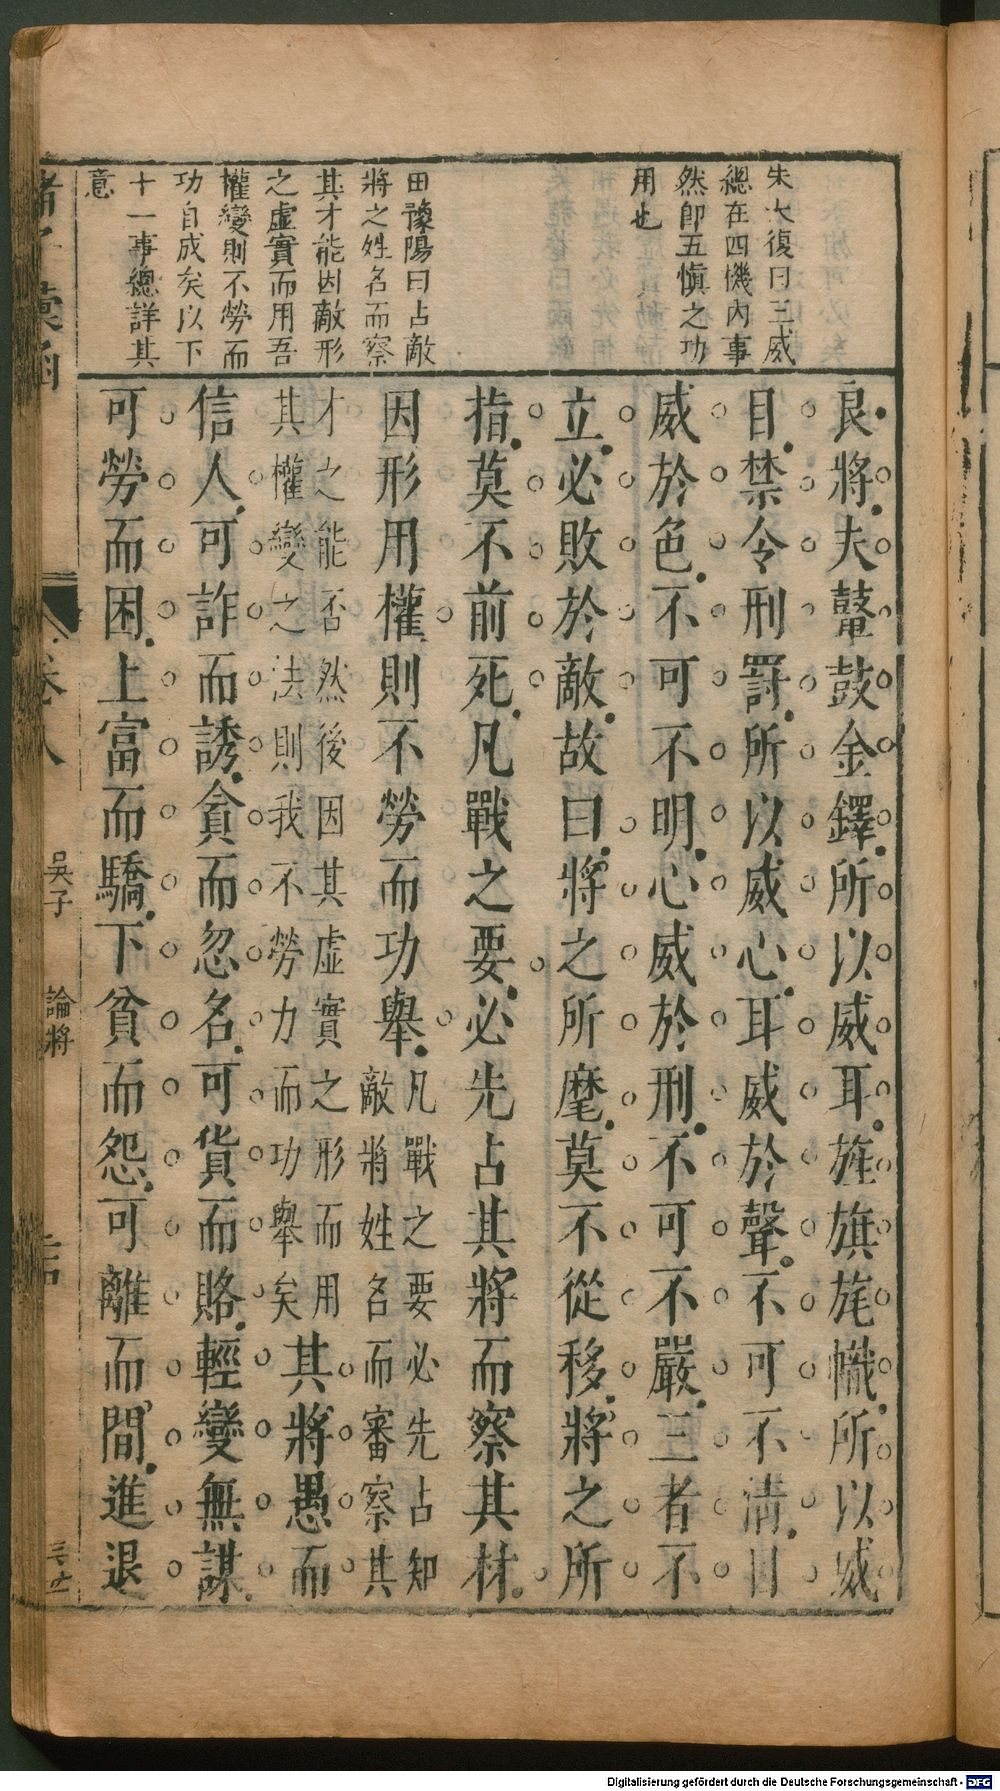 朱大復曰三威
總在四機內事
然卽五愼之功
用也
田豫陽曰占敵
將之姓名而察
其才能因敵形
之虛實而用吾
權變則不勞而
功自成矣以下
十一事總詳其
意
良將夫鼙鼓金鐸所以威耳旌旗旄幟所以威
目禁令刑罰所以威心耳威於聲不可不淸目
威於色不可不明心威於刑不可不嚴三者不
立必敗於敵故曰將之所麾莫不從移將之所
指莫不前死凡戰之要必先占其將而察其材
因形用權則不勞而功舉凡戰之要必先占知
敵將姓名而審察其
才之能否然後因其虛實之形而用
其權變之法則我不勞力而功舉矣其將愚而
信人可詐而誘貪而忽名可貨而賂輕變無謀
可勞而困上富而驕下貧而怨可離而間進退
諸子彙函
卷八
吳子
論將
Digitalisierung gefördert durch die Deutsche Forschungsgemeinschaft - DFG